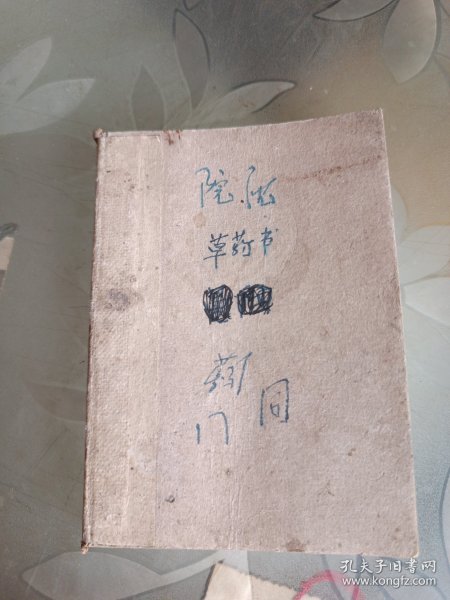 院
草药书
门
同
孔夫子旧书网
www.kongfz.com